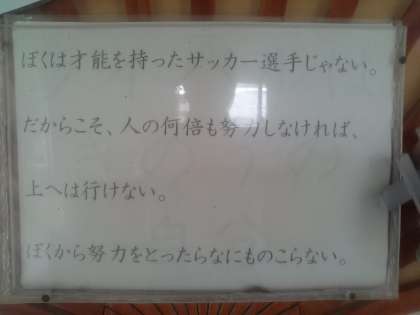 ぼくは才能を持ったサッカー選手じゃない。
だからこそ、人の何倍も努力しなければ、
上へは行けない。
ぼくから努力をとったらなにものこらない。